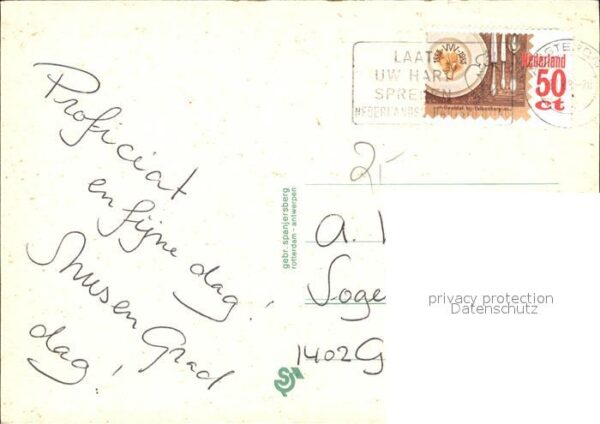 Proficiat
en fijne dag!
dag!
LAAT
UW HART
SPREKEN
NEDERLANDSE
VVV
Nederland
50
ct
2,-
gebr. spanjersberg
rotterdam - antwerpen
a.
Soge
1402G
privacy protection
Datenschutz